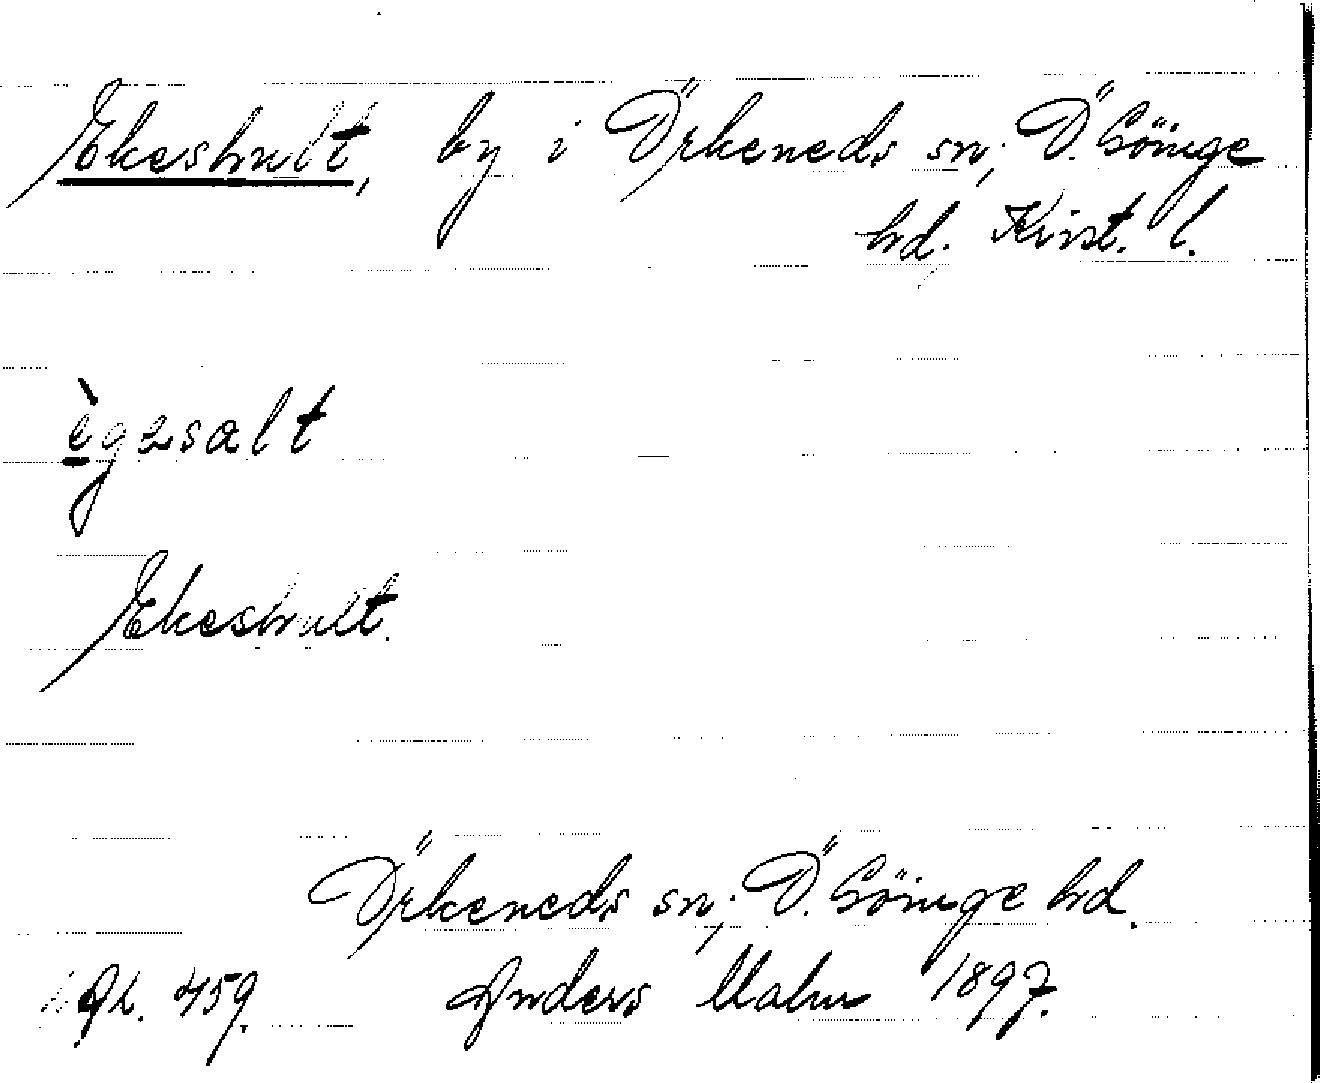 Ekeshult, by i Örkeneds sn, Ö. Göinge
hrd. Krist. l.
ègəsalt
Ekeshult.
Örkeneds sn, Ö. Göinge hrd.
459. Anders Malm 1897.